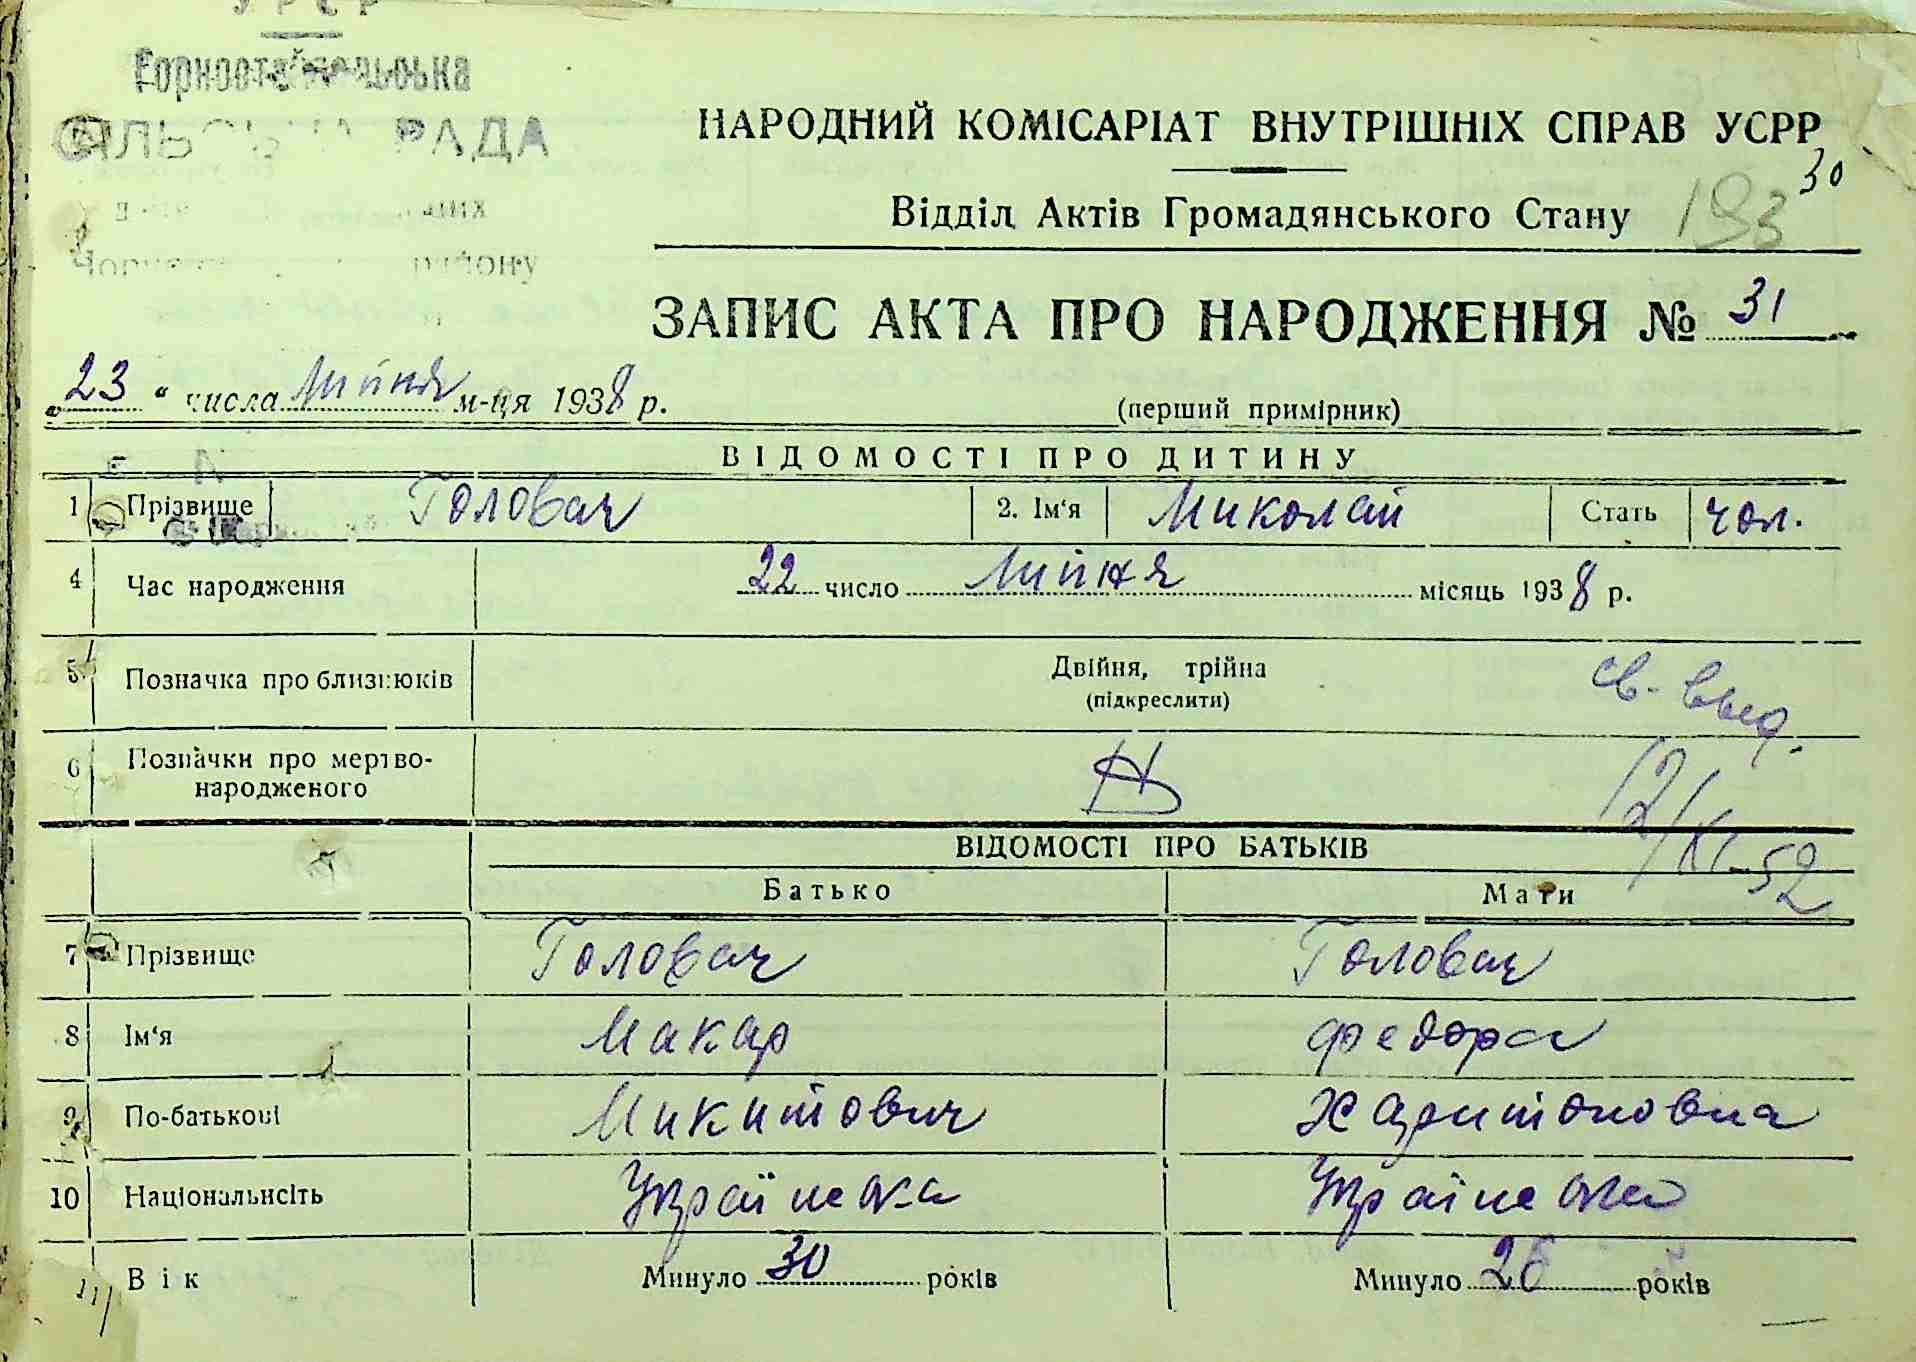 УРСР
СІЛЬСЬКА РАДА
району
НАРОДНИЙ КОМІСАРІАТ ВНУТРІШНІХ СПРАВ УСРР
30
Відділ Актів Громадянського Стану 193
ЗАПИС АКТА ПРО НАРОДЖЕННЯ № 31
„23“ числа Лийня м-ця 1938 р. (перший примірник)
ВІДОМОСТІ ПРО ДИТИНУ
1 Прізвище Головач 2. Ім‘я Миколай Стать чол.
4 Час народження 22 число Лийня місяць 1938 р.
5 Позначка про близнюків Двійня, трійна
(підкреслити)
св. выд.
6 Позначки про мертво-
народженого
12/XI-52
ВІДОМОСТІ ПРО БАТЬКІВ
Батько Мати
7 Прізвище Головач Головач
8 Ім‘я Макар Федора
9 По-батькові Микитович Харитоновна
10 Національнсіть Українска Українска
11 Вік Минуло 30 років Минуло 26 років